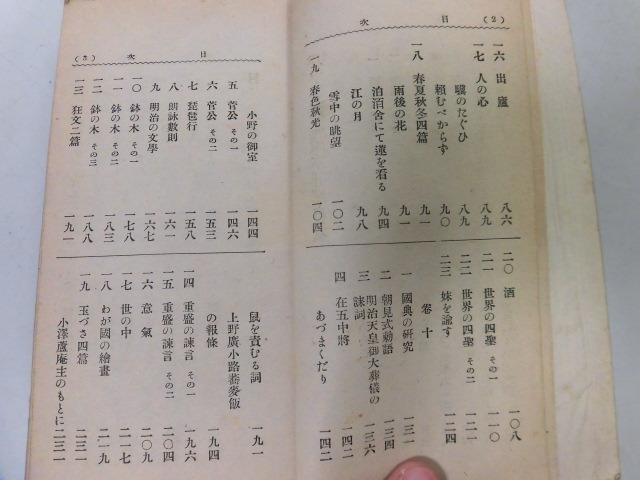 (2) 目次
一六 出廬 八六
一七 人の心 八九
驥のたぐひ 八九
頼むべからず 九〇
一八 春夏秋冬四篇 九一
雨後の花 九一
泊洎舍にて蓮を看る 九四
江の月 九八
雪中の眺望 一〇二
一九 春色秋光 一〇四
二〇 酒 一〇八
二一 世界の四聖 その一 一一〇
二二 世界の四聖 その二 一二一
二三 妹を諭す 一二四
卷十
一 國典の研究 一三一
二 朝見式勅語 一三四
三 明治天皇御大葬儀の
誄詞 一三六
四 在五中將 一四二
あづまくだり 一四二
目次 (3)
小野の御室 一四四
五 菅公 その一 一四六
六 菅公 その二 一五三
七 琵琶行 一五八
八 朗詠數則 一六一
九 明治の文學 一六七
一〇 鉢の木 その一 一七八
一一 鉢の木 その二 一八三
一二 鉢の木 その三 一八八
一三 狂文二篇 一九一
鼠を責むる詞 一九一
上野廣小路蕎麥飯
の報條 一九四
一四 重盛の諫言 その一 一九六
一五 重盛の諫言 その二 二〇四
一六 意氣 二〇九
一七 世の中 二一七
一八 わが國の繪畫 二一九
一九 玉づさ四篇 二三一
小澤蘆庵主のもとに 二三一